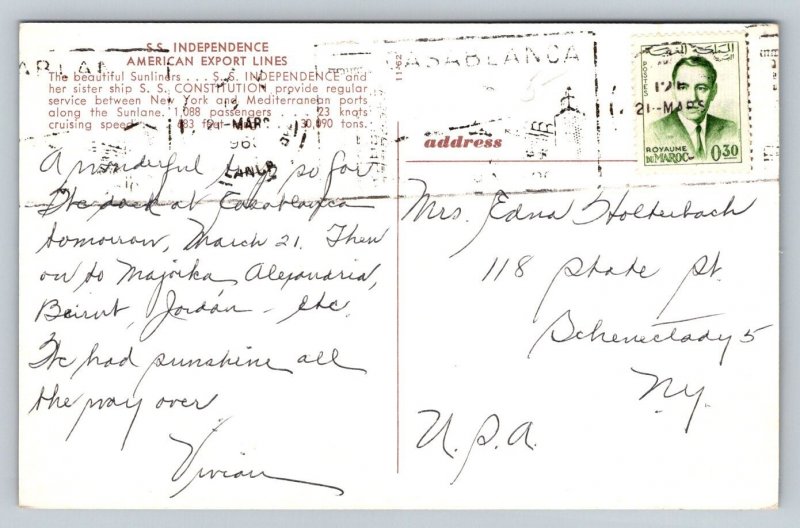 S.S. INDEPENDENCE
AMERICAN EXPORT LINES
The beautiful Sunliners . . . S. S. INDEPENDENCE and
her sister ship S. S. CONSTITUTION provide regular
service between New York and Mediterranean ports
along the Sunlane. 1,088 passengers . . . 23 knots
cruising speed 683 30,090 tons.
11-62
CASABLANCA
21-MARS
21-MARS
196
POSTES
ROYAUME
DU MAROC 0,30
address
A wonderful trip so far
We dock at Casablanca
tomorrow, March 21. Then
on to Majorka, Alexandria,
Beirut, Jordan - etc.
We had sunshine all
the way over.
Vivian
Mrs. Edna Holterbach
118 State St.
Schenectady 5
N.Y.
U.S.A.